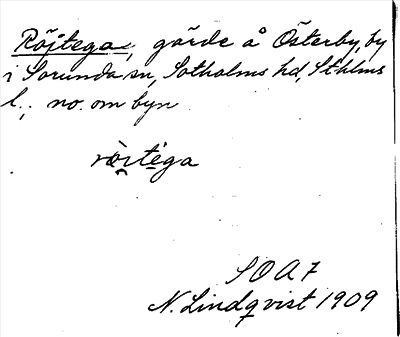 Röjtega, gärde å Österby, by
i Sorunda sn, Sotholms hd, Sthlms
l.; no. om byn
SOA 7
N. Lindqvist 1909